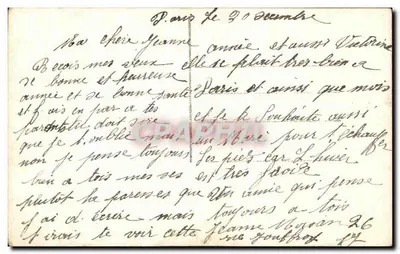 Paris Le 30 Decembre
Ma chere Jeanne
Recois mes veux
de bonne et heureuse
année et de bonne santé
et fais en par a tes
parents tu doit dire
que je t'oublie mais
non je pense toujours
bien a toi mes
plutot la paresses que
j'ai d'écrire mais toujours a toi
j'irais te voir cette
année et aussi Victorine
elle se plait tres bien a
Paris et ainsi que mois
et je te Souhaite aussi
un Mari pour t'échauffer
les piez car l'hiver
est tres froide
Ton amie qui pense
Jeanne 26
rue Jouffroy 17